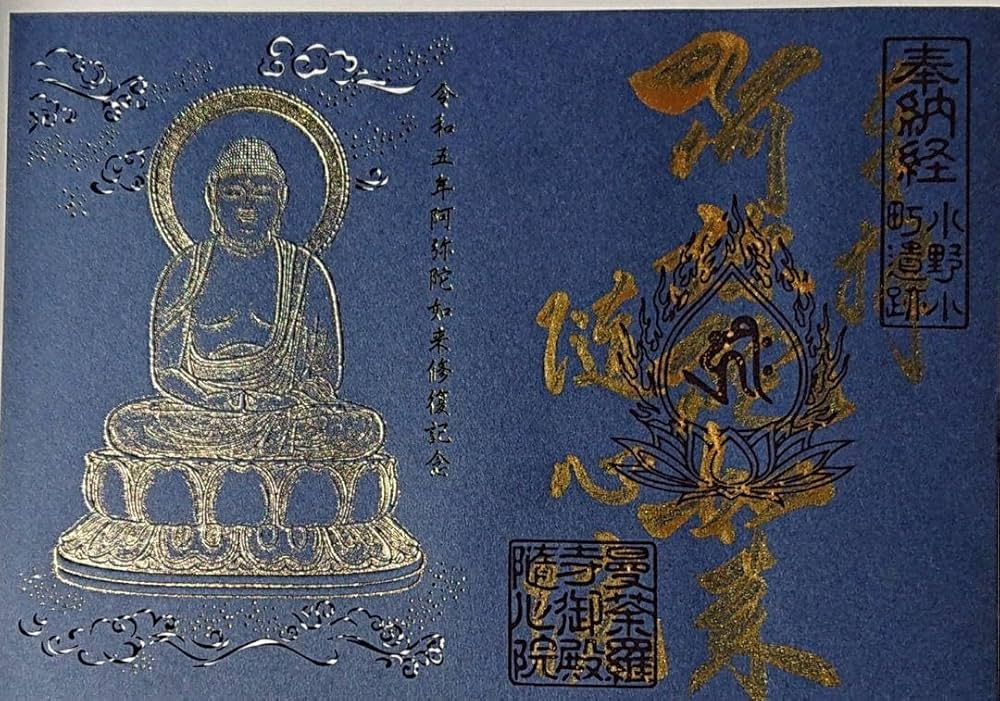 奉納経
小野小
町遺跡
奉拝
阿弥陀如来
随心院
曼荼羅
寺御殿
随心院
令和五年阿弥陀如来修復記念